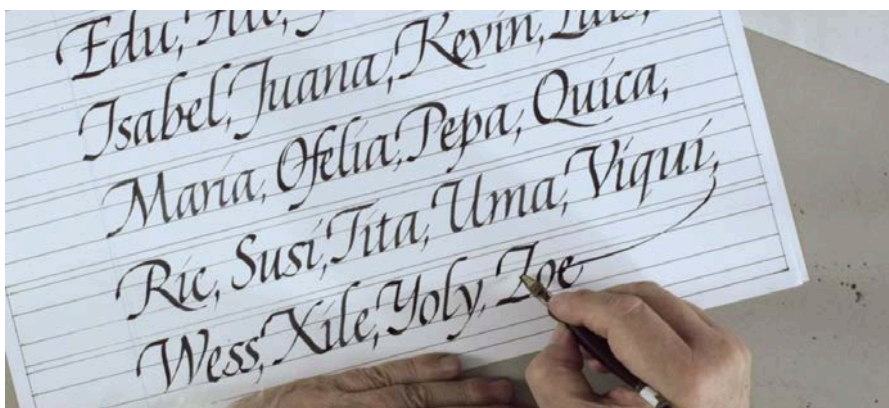 Edu,
Isabel, Juana, Kevin, Luis,
María, Ofelia, Pepa, Quica,
Ric, Susi, Tita, Uma, Viqui,
Wess, Xile, Yoly, Zoe